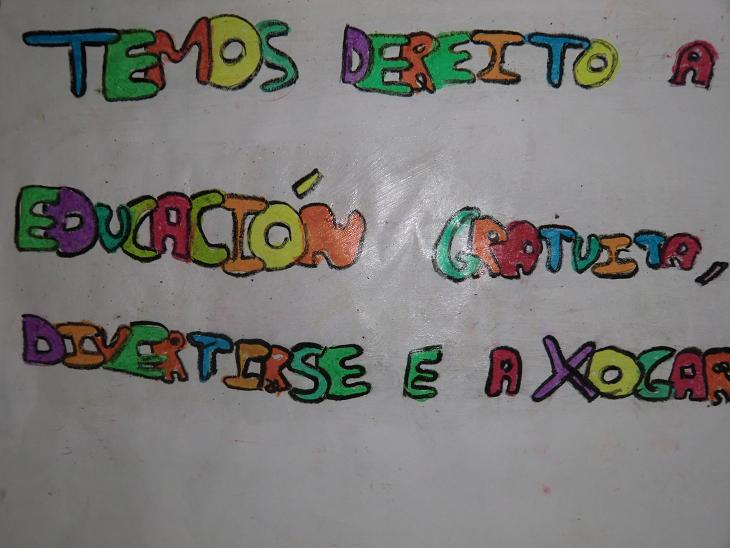 TEMOS DEREITO A
EDUCACIÓN GRATUITA,
DIVERTIRSE E A XOGAR